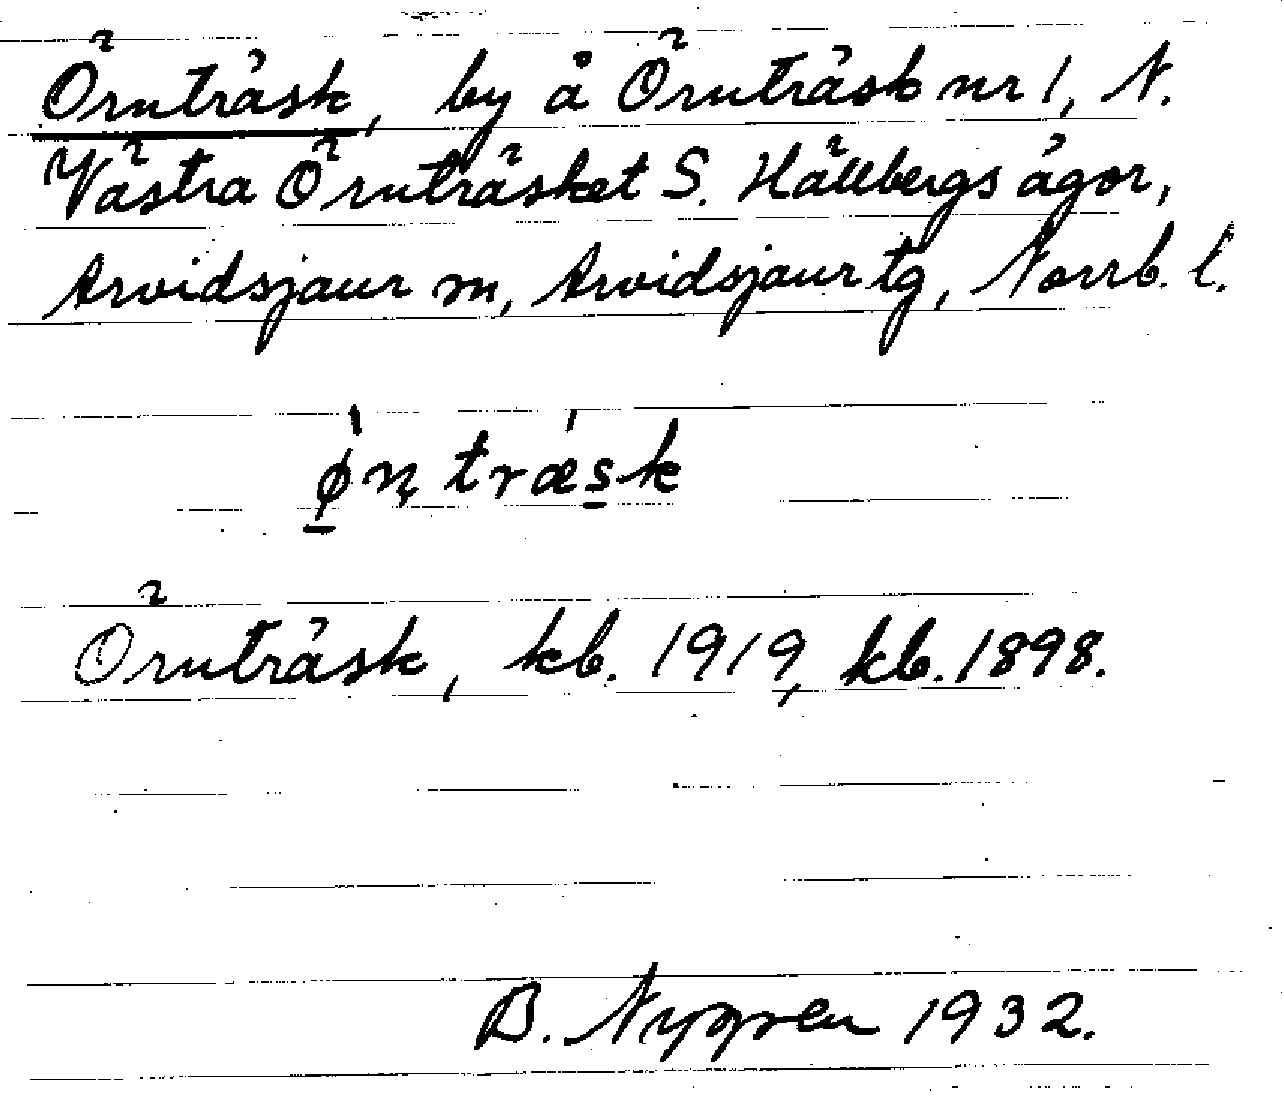 Örnträsk, by å Örnträsk nr 1, N.
Västra Örnträsket S. Hällbergs ägor,
Arvidsjaur sn, Arvidsjaur tg, Norrb. l.
ø̀ɳtræ̀sk
Örnträsk, kb. 1919, kb. 1898.
B. Nygren 1932.